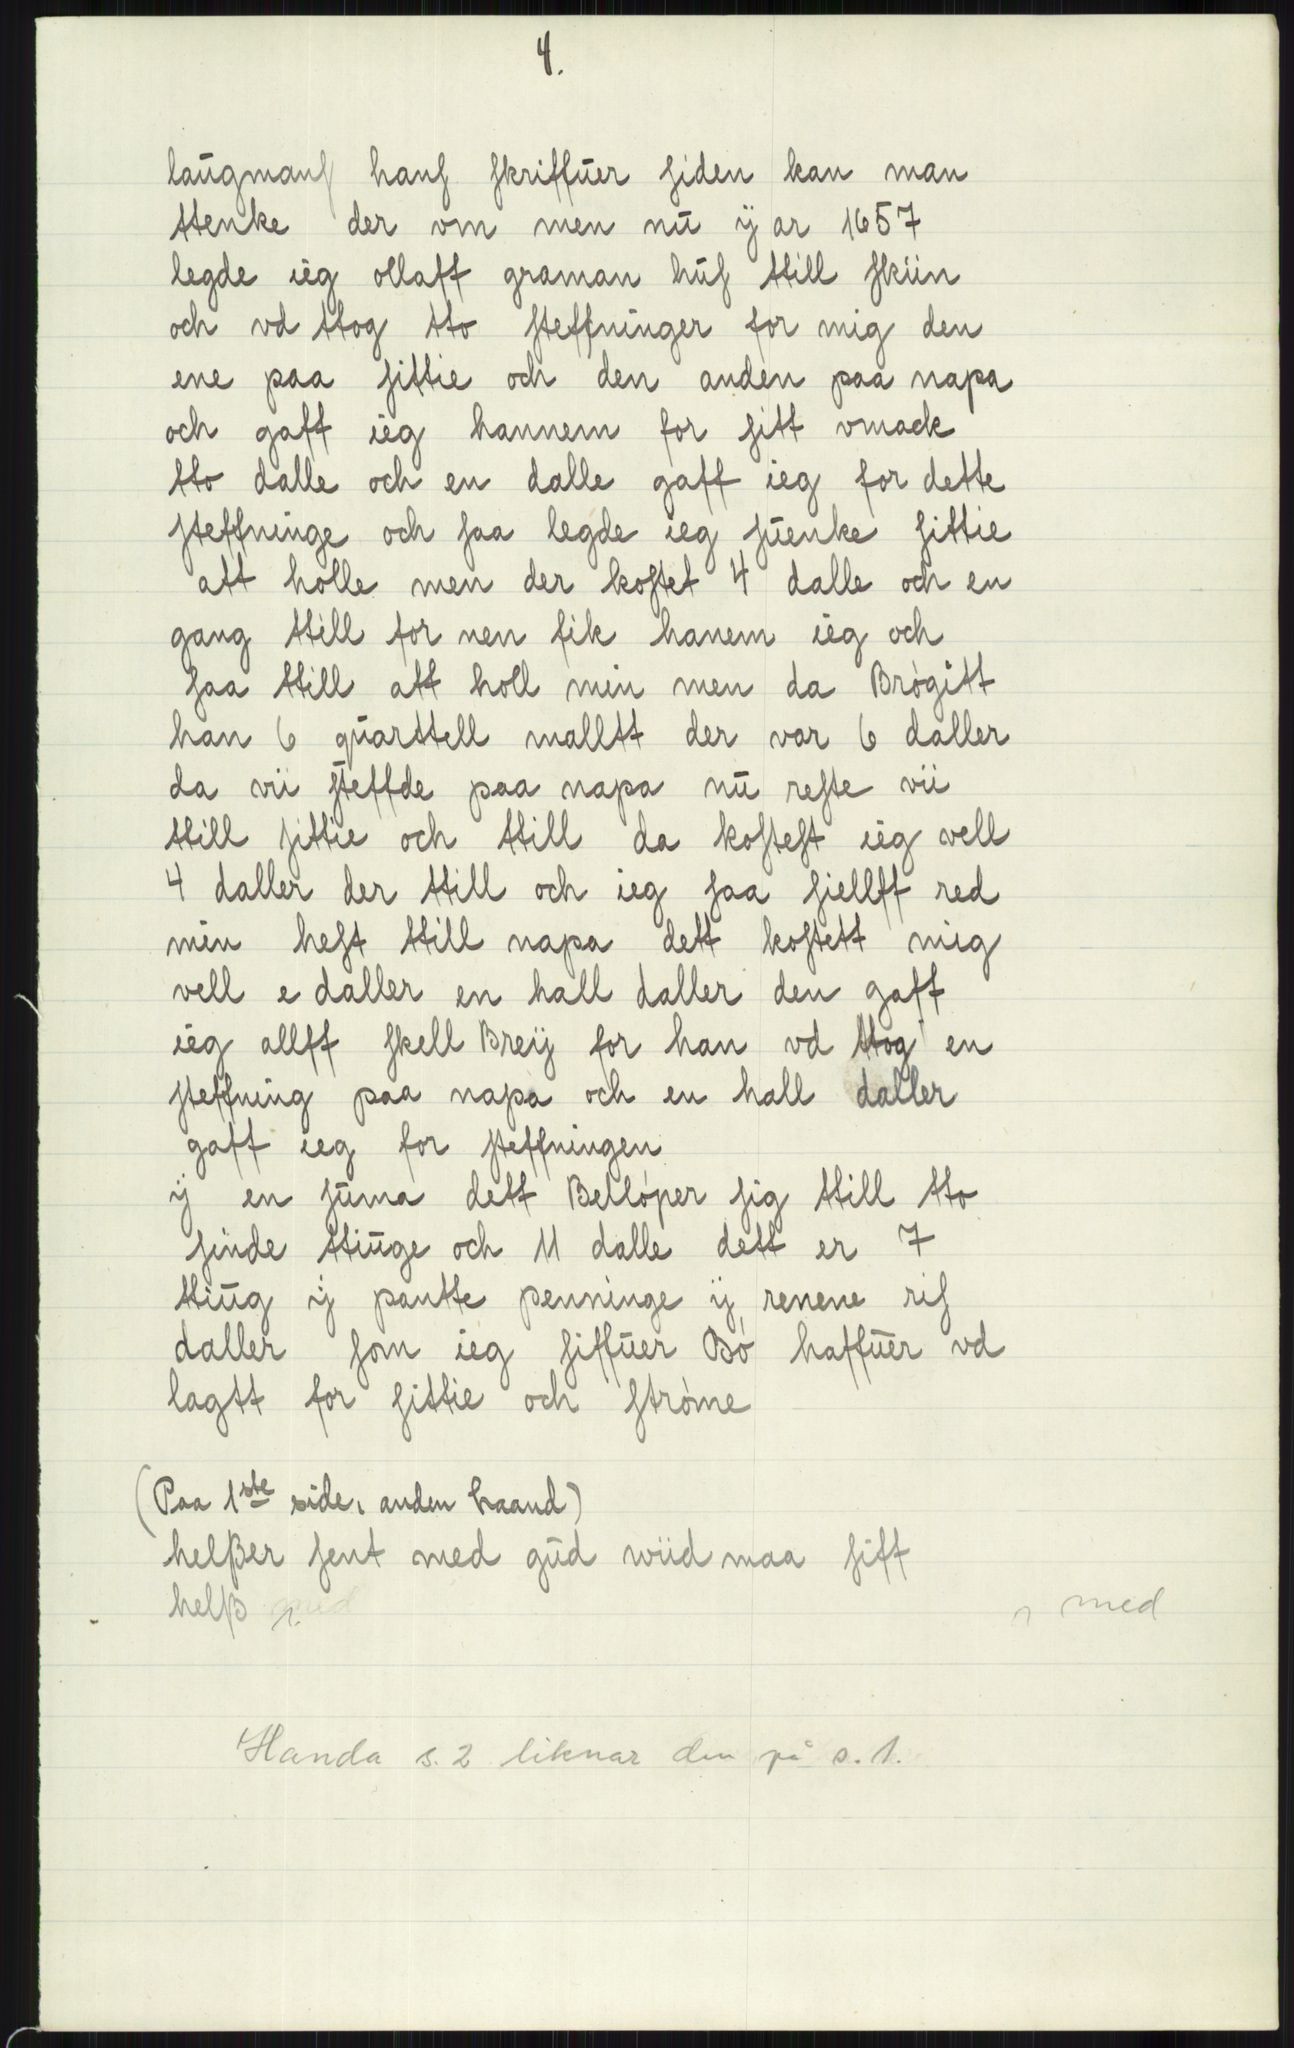 4.
laūgmanſ hanſ ſkriffūer ſiden kan man
ttenke der vm men nū ÿ ar 1657
legde ieg ollaff graman hūſ ttill ſkiin
och vd ttog tto ſteffninger for mig den
ene paa ſittie och den anden paa napa
och gaff ieg hannem for ſitt vmack
tto dalle och en dalle gaff ieg for dette
ſteffninge och ſaa legde ieg ſūenke ſittie
att holle men der koſtet 4 dalle och en
gang ttill for nen fik hanem ieg och
ſaa ttill att holl min men da Brógitt
han 6 qūarttell malltt der var 6 daller
da vii ſteffde paa napa nū reſte vii
ttill ſittie och ttill da koſteſt ieg vell
4 daller der ttill och ieg ſaa ſiellff red
min heſt ttill napa dett koſtett mig
vell e daller en hall daller den gaff
ieg allff ſkell Breÿ for han vd ttog en
ſteffning paa napa och en hall daller
gaff ieg for ſteffningen
ÿ en ſūma dett Bellóper ſig ttill tto
ſinde ttiūge och 11 dalle dett er 7
ttiūg ÿ pantte penninge ÿ renene riſ
daller ſom ieg ſiffūer Bó haffūer vd
lagtt for ſittie och ſtróme
(Paa 1ste side, anden haand)
helßer ſent med gūd wiid maa ſiff
helß med
med
Handa s. 2 liknar den på s. 1.